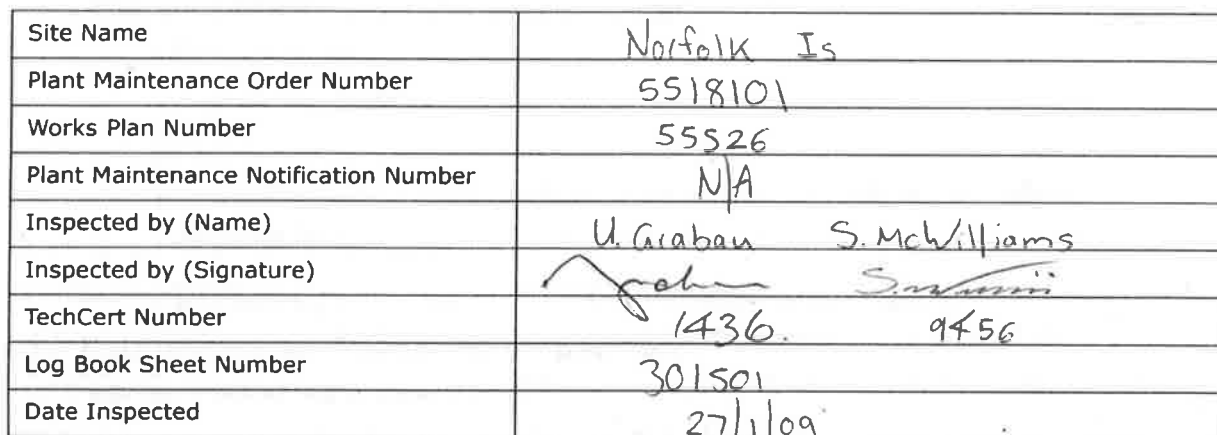 Site Name Norfolk Is
Plant Maintenance Order Number 5518101
Works Plan Number 55526
Plant Maintenance Notification Number N/A
Inspected by (Name) U. Graban S. McWilliams
Inspected by (Signature)
TechCert Number 1436. 9456
Log Book Sheet Number 301501
Date Inspected 27/1/09